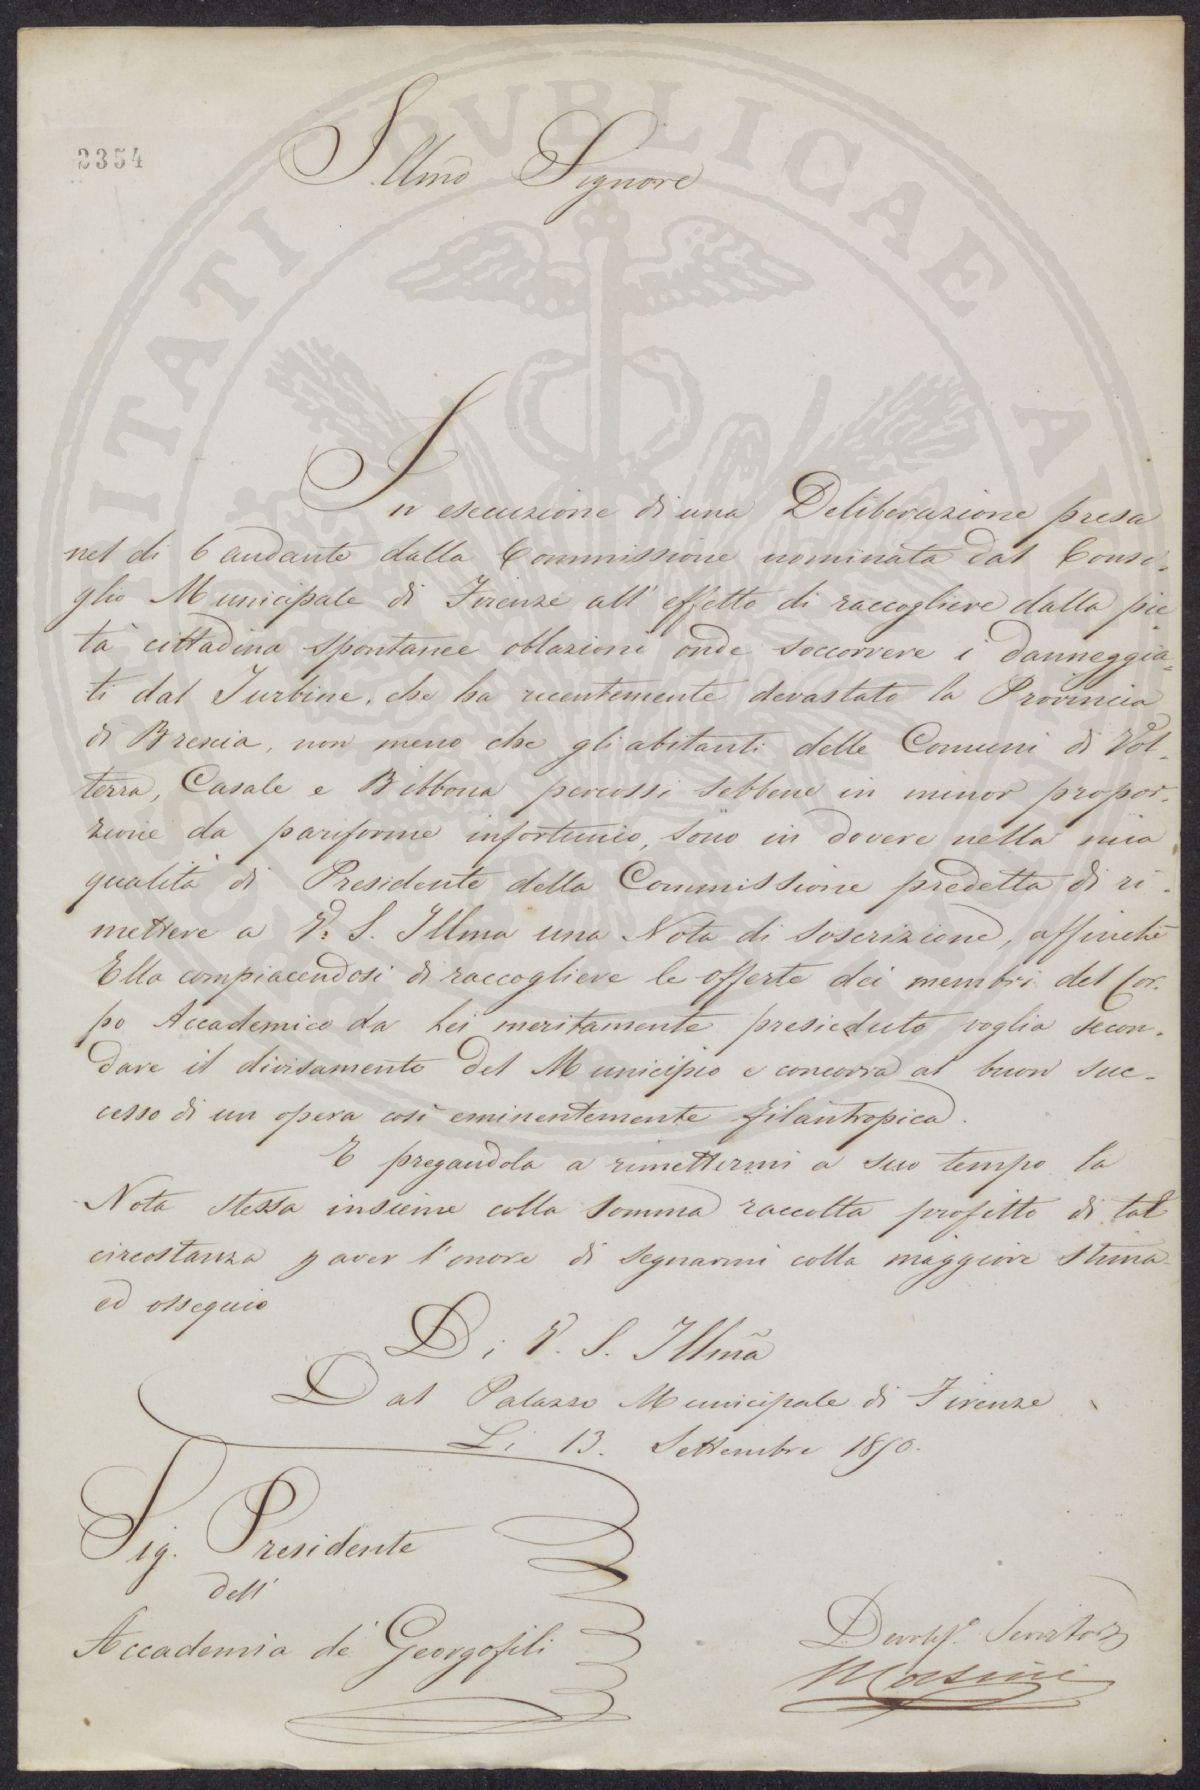 2354
Illmo Signore
In esecuzione di una Deliberazione presa
nel di 6 andante dalla Commissione nominata dal Consi-
glio Municipale di Firenze all' effetto di raccogliere dalla pie
tà cittadina spontanee oblazioni onde soccorrere i danneggia-
ti dal Turbine, che ha recentemente devastato la Provincia
di Brescia, non meno che gli abitanti delle Comuni di Vol-
terra, Casale e Bibbona percossi sebbene in minor propor-
zione da pariforme infortunio, sono in dovere nella mia
qualità di Presidente della Commissione predetta di ri-
mettere a V. S. Illma una Nota di soscrizione, affinchè
Ella compiacendosi di raccogliere le offerte dei membri del Cor-
po Accademico da Lei meritamente presieduto voglia secon-
dare il divisamento del Municipio e concorra al buon suc-
cesso di un opera così eminentemente filantropica.
E pregandola a rimettermi a suo tempo la
Nota stessa insieme colla somma raccolta profitto di tal
circostanza p aver l'onore di segnarmi colla maggiore stima
ed ossequio
Di V. S. Illma
Dal Palazzo Municipale di Firenze
Li 13. Settembre 1850.
Sig. Presidente
dell'
Accademia de' Georgofili
Servitore